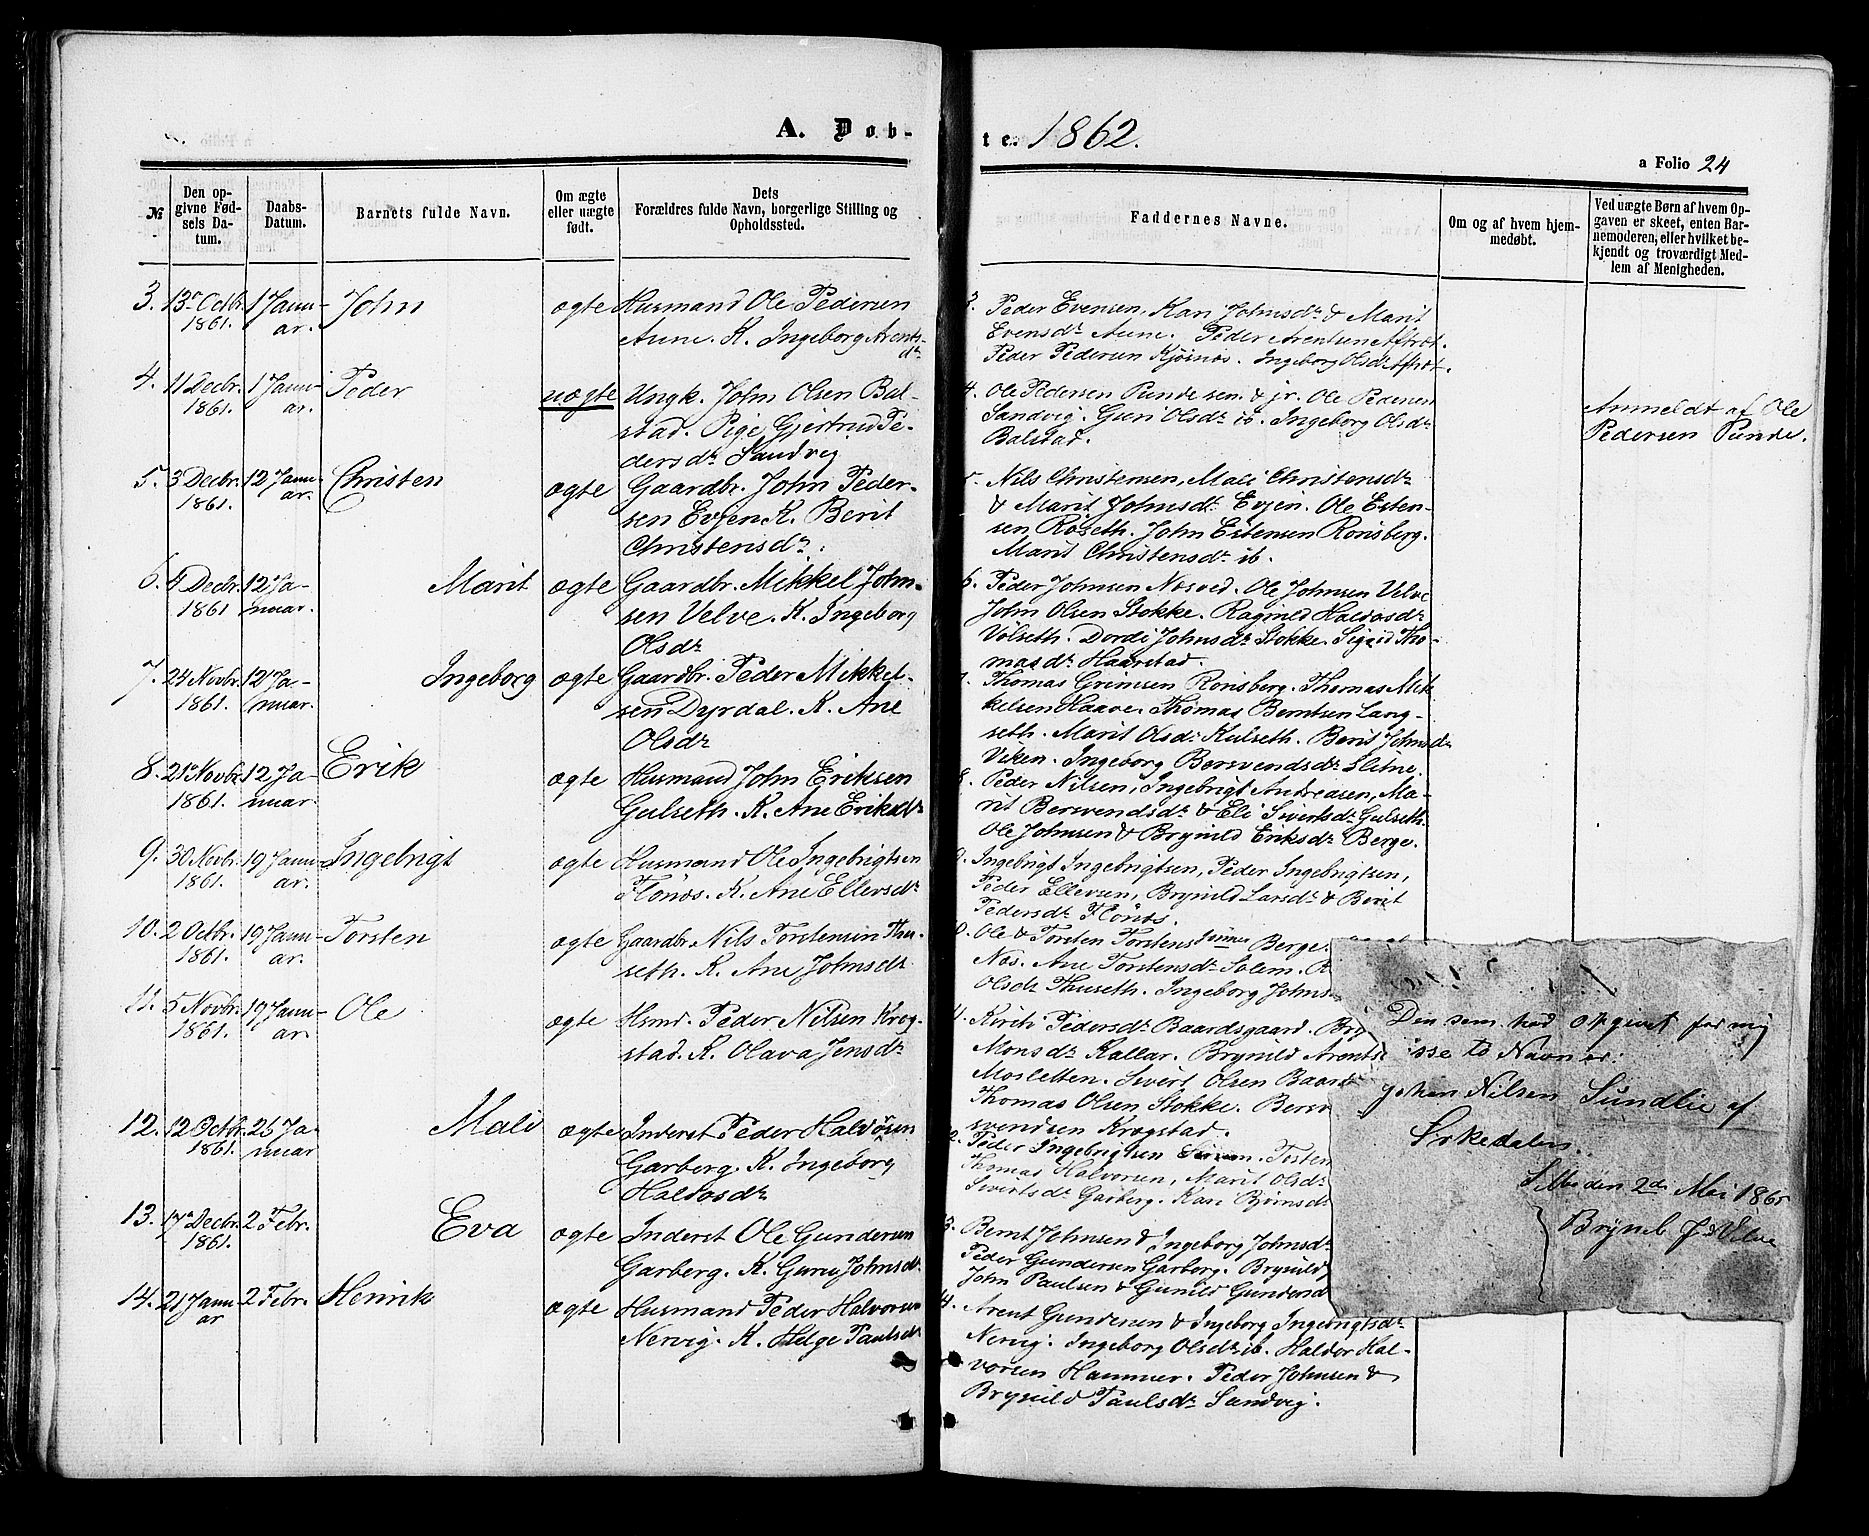 A. Døb-
te. 1862.
a Folio 24
№
Den op-
givne Fød-
sels Da-
tum.
Daabs-
Datum.
Barnets fulde Navn.
Om ægte
eller uægte
født.
Dets
Forældres fulde Navn, borgerlige Stilling og
Opholdssted.
Faddernes Navne.
Om og af hvem hjem-
medøbt.
Ved uægte Børn af hvem Op-
gaven er skeet, enten Bar-
nemoderen, eller hvilket be-
kjendt og troværdigt Med-
lem af Menigheden.
3. 13de Octbr. 1 Janu- John ægte Husmand Ole Pedersen
1861. ar. Aune. K. Ingeborg Arents-
dr
3. Peder Evensen, Kari Johnsdr & Marit
Evensdr Aune. Peder Arentsen Aftret.
Peder Pedersen Kjøsnæs. Ingeborg Olsdr Aftret.
4. 11 Decbr. 1 Janu- Peder uægte Ungk. John Olsen Bal-
1861. ar. stad. Pige Gjertrud Pe-
dersdr Sandvig
4. Ole Pedersen Punde sen. & jr. Ole Pedersen
Sandvig. Guri Olsdr ib. Ingeborg Olsdr
Balstad.
Anmeldt af Ole
Pedersen Punde.
5. 3 Decbr. 12 Janu- Christen ægte Gaardbr. John Peder-
1861. ar. sen Evjen K. Berit
Christensdr.
5. Nils Christensen, Mali Christensdr
& Marit Johnsdr Evjen. Ole Esten-
sen Roseth. John Estensen Rønsberg.
Marit Christensdr ib.
6. 4 Decbr. 12 Ja- Marit ægte Gaardbr. Mikkel John-
1861 nuar. sen Velve. K. Ingeborg
Olsdr
6. Peder Johnsen Næsved. Ole Johnsen Velve
John Olsen Stokke. Ragnild Haldosdr
Volseth. Dordi Johnsdr Stokke. Sigrid Tho-
masdr Haarstad.
7. 24 Novbr. 12 Ja- Ingeborg ægte Gaardbr. Peder Mikkel-
1861. nuar. sen Dyrdal. K. Ane
Olsdr
7. Thomas Grimsen Rønsberg. Thomas Mik-
kelsen Haave. Thomas Berntsen Lang-
seth. Marit Olsdr Kulseth. Berit Johnsdr
Viken. Ingeborg Bersvendsdr Slitne.
8. 21 Novbr. 12 Ja- Erik ægte Husmand John Eriksen
1861. nuar. Gulseth. K. Ane Eriksdr
8. Peder Nilsen, Ingebrigt Andreasen, Ma-
rit Bersvendsdr & Eli Sivertsdr Gulseth.
Ole Johnsen & Brynild Eriksdr Berge.
9. 30 Novbr. 19 Janu- Ingebrigt ægte Husmand Ole Ingebrigtsen
1861. ar. Flønæs. K. Ane Ellevsdr
9. Ingebrigt Ingebrigtsen, Peder Ingebrigtsen,
Peder Ellevsen, Brynild Larsdr & Berit
Pedersdr Flønæs.
10. 2 Octbr. 19 Janu- Torsten ægte Gaardbr Nils Torstensen Thu-
1861. ar. seth. K. Ane Johnsdr
0. Ole & Torsten Torstens sønner Berge.
Næs. Ane Torstensdr Solem.
Olsdr Thuseth. Ingeborg Johns
11. 5 Novbr. 19 Janu- Ole ægte Hsmd. Peder Nilsen Krog-
1861. ar. stad. K. Olava Jensdr
11. Kirsti Pedersdr Baardsgaard. Bry
Monsdr Kallar. Brynild Arents
Mosletten. Sivert Olsen Baard
Thomas Olsen Stokke. Bersv
svendsen Krogstad.
12. 12 Octbr. 26 Ja- Mali ægte Inderst Peder Halvorsen
1861. nuar Garberg. K. Ingeborg
Haldosdr
2. Peder Ingebrigtsen. Torsten
Thomas Halvorsen, Marit Olsdr
Sivertsdr Garberg. Kari Bjørnsdr
13. 17de Decbr. 2 Febr. Eva ægte Inderst Ole Gundersen
1861. Garberg. K. Guru Johnsdr
3. Bernt Johnsen & Ingeborg Johnsdr
Peder Gundersen Garberg. Brynild
John Paulsen & Gunild Gundersd
14. 21 Janu- 2 Febr. Henrik ægte Husmand Peder Halvorsen
ar Nervig. K. Helge Paulsdr
14. Arent Gundersen & Ingeborg Ingebrigtsdr
Nervig. Ingeborg Olsdr ib. Haldor Hal-
vorsen Hammer. Peder Johnsen &
Brynild Paulsdr Sandvig.
Den som had opgivet for mig
isse to Navn er
Johan Nilsen Sundlie af
Sirkedalen.
Selbu den 2de Mai 1865
Bryneb. J. Velve